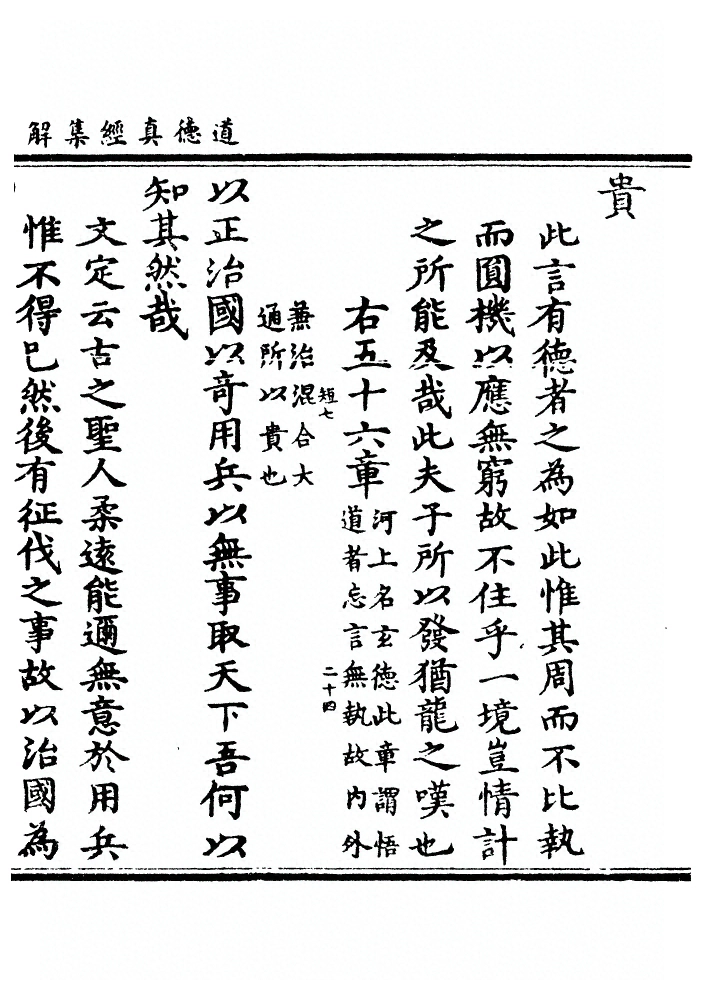 道德真經集解
貴
此言有德者之為如此惟其周而不比執
而圓機以應無窮故不住乎一境豈情計
之所能及哉此夫子所以發猶龍之嘆也
右五十六章
河上名玄德此章謂悟
道者忘言無執故內外
二十四
短七
兼治混合大
通所以貴也
以正治國以奇用兵以無事取天下吾何以
知其然哉
文定云古之聖人柔遠能邇無意於用兵
惟不得已然後有征伐之事故以治國為